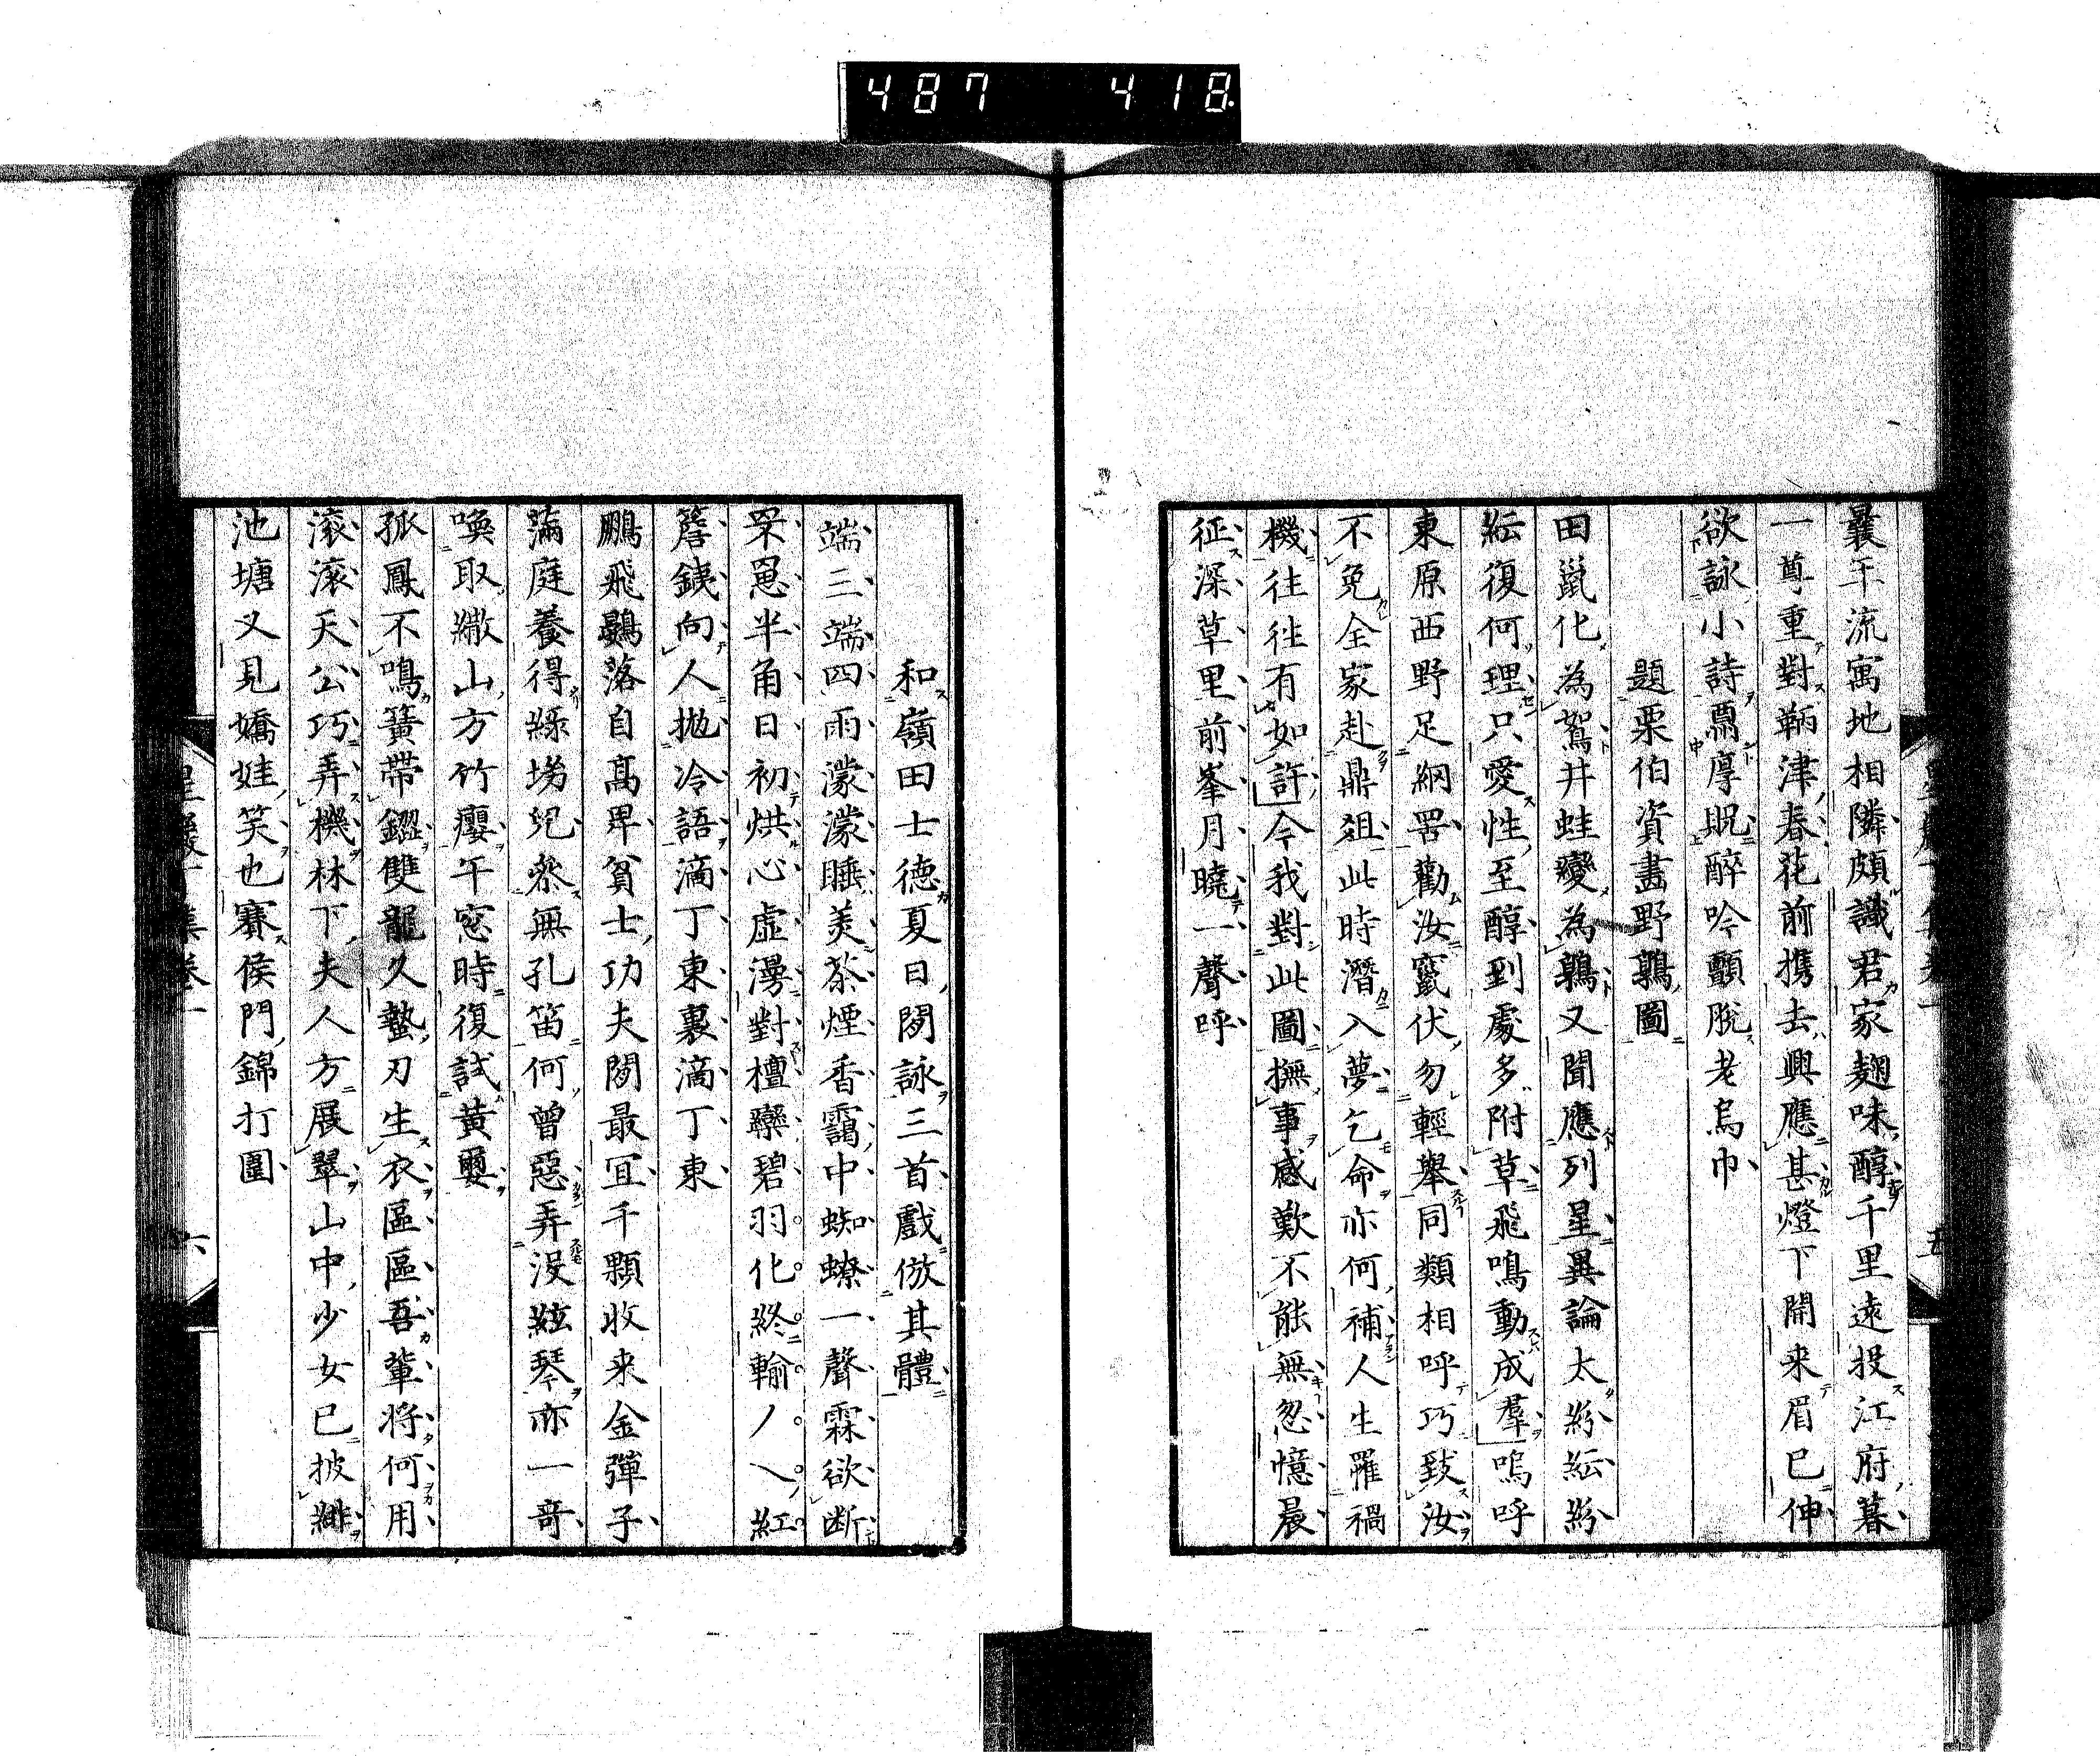 487 418
曩年流寓地相隣頗識君家麹味醇千里遠投江府暮
一尊重對鞆津春花前携去興應甚燈下開来眉已伸
欲詠小詩酬厚貺醉吟顫脫老烏巾
題栗伯資畫野鶉圖
田鼠化為鴽井蛙變為鶉又聞應列星異論太紛紜紛
紜復何理只愛性至醇到處多附草飛鳴動成羣嗚呼
東原西野足網罟勸汝竄伏勿輕舉同類相呼巧致汝
不免全家赴鼎俎此時潛入夢乞命亦何補人生罹禍
機往往有如許今我對此圖撫事感歎不能無忽憶晨
征深草里前峯月曉一聲呼
五
和嶺田士德夏日閒詠三首戲倣其體
端三端四雨濛濛睡美茶煙香靄中蜘蟟一聲霖欲断
罘罳半角日初烘心虛漫對檀欒碧羽化終輸ノ乀紅
簷鐵向人拋冷語滴丁東裏滴丁東
鵬飛鷃落自高卑貧士功夫閒最冝千顆收来金彈子
滿庭養得綠塲兒叅無孔笛何曾惡弄沒絃琴亦一奇
喚取緻山方竹癭午窓時復試黃嬭
孤鳳不鳴簧帶澀雙龍久蟄刃生衣區區吾輩將何用
滾滾天公巧弄機林下夫人方展翠山中少女已披緋
池塘又見嬌娃笑也賽侯門錦打圍
六